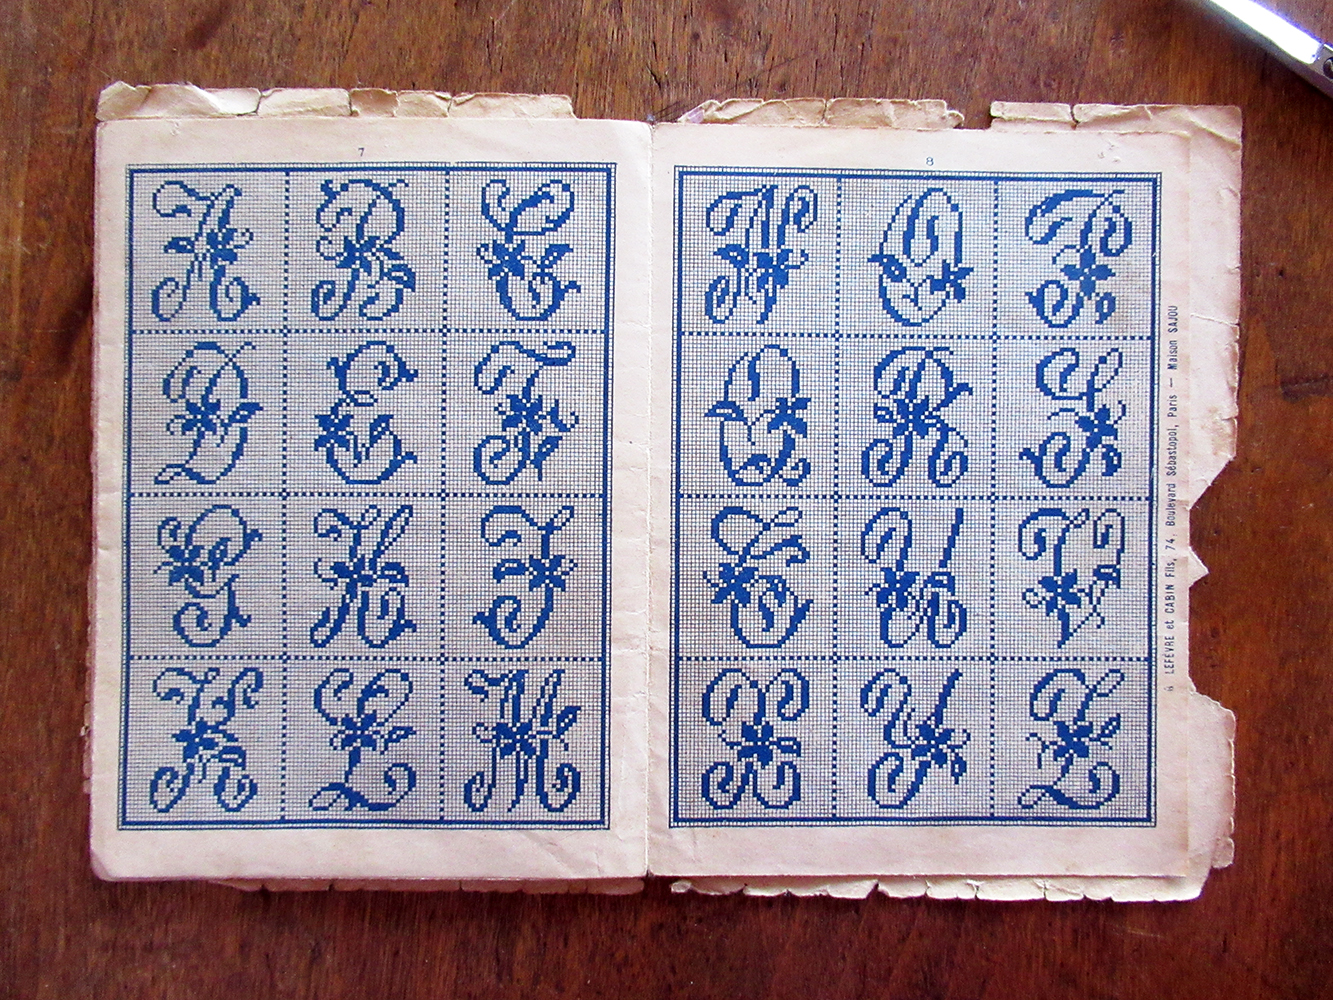 7
A B C
D E F
G H I
K L M
8
N O P
Q R S
T U V
X Y Z
LEFEVRE et CABIN Fils, 74, Boulevard Sébastopol, Paris — Maison SAJOU